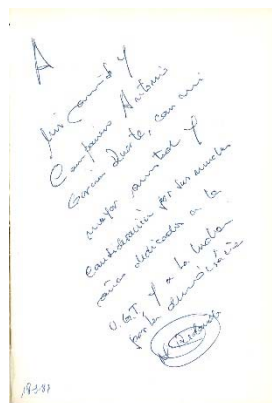 A
mi amigo y
Compañero Antonio
García Duarte, con mi
mayor amistad y
consideración por sus muchos
años dedicados a la
U.G.T. y a la lucha
por la democracia